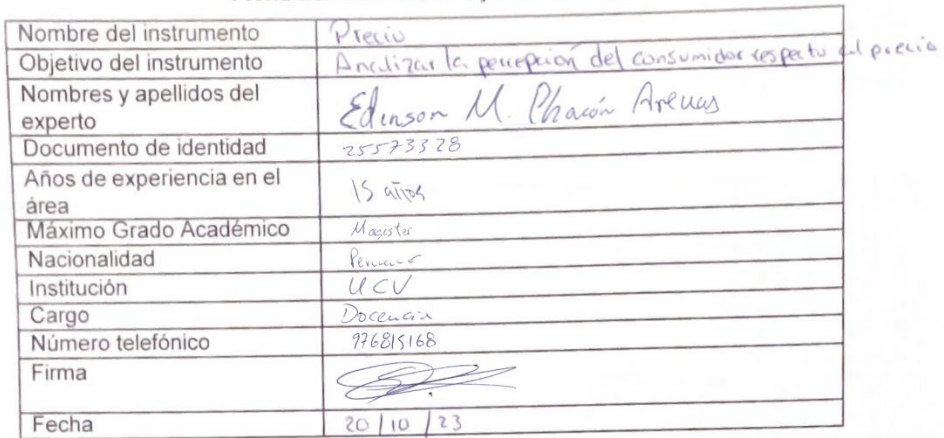 Nombre del instrumento Precio
Objetivo del instrumento Analizar la percepción del consumidor respecto al precio
Nombres y apellidos del
experto Edinson M. Chacón Arenas
Documento de identidad 25573328
Años de experiencia en el
área 15 años
Máximo Grado Académico Magister
Nacionalidad Peruano
Institución UCV
Cargo Docencia
Número telefónico 976815168
Firma
Fecha 20/10/23